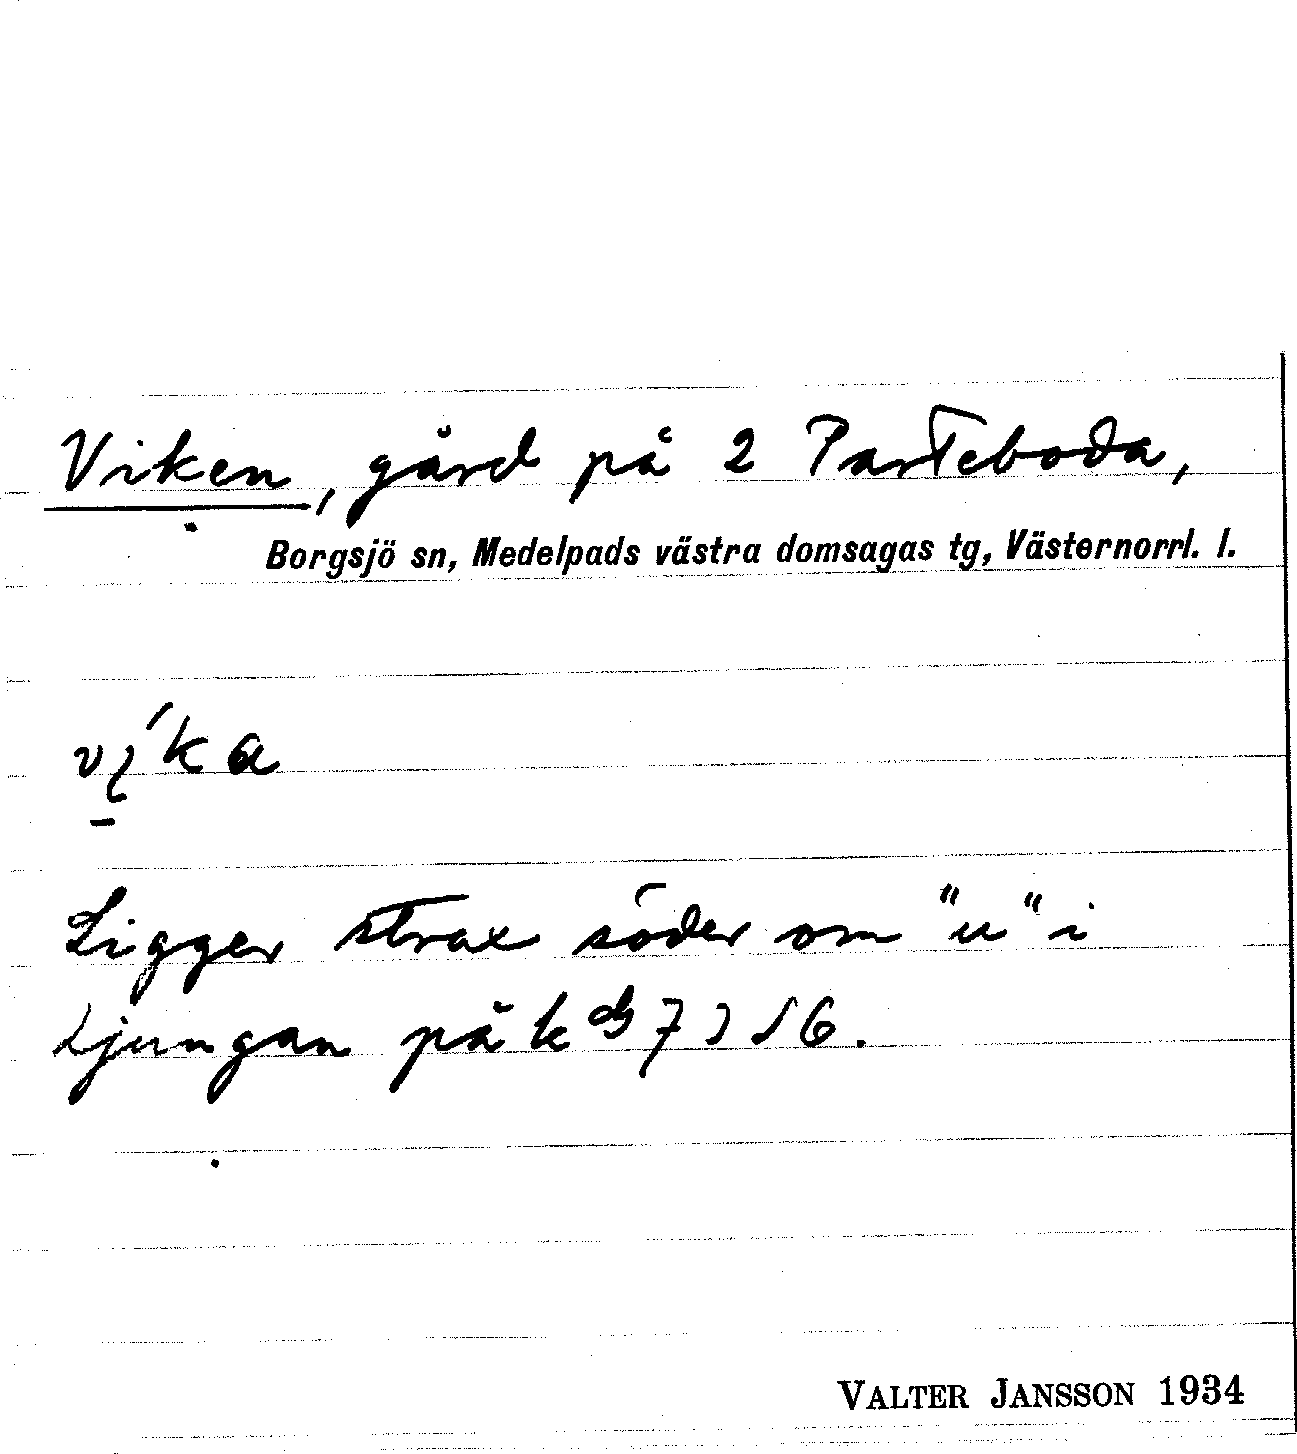 Viken, gård på 2 Parteboda,
Borgsjö sn, Medelpads västra domsagas tg, Västernorrl. l.
Ligger strax söder om "u" i
Ljungan på k
VALTER JANSSON 1934